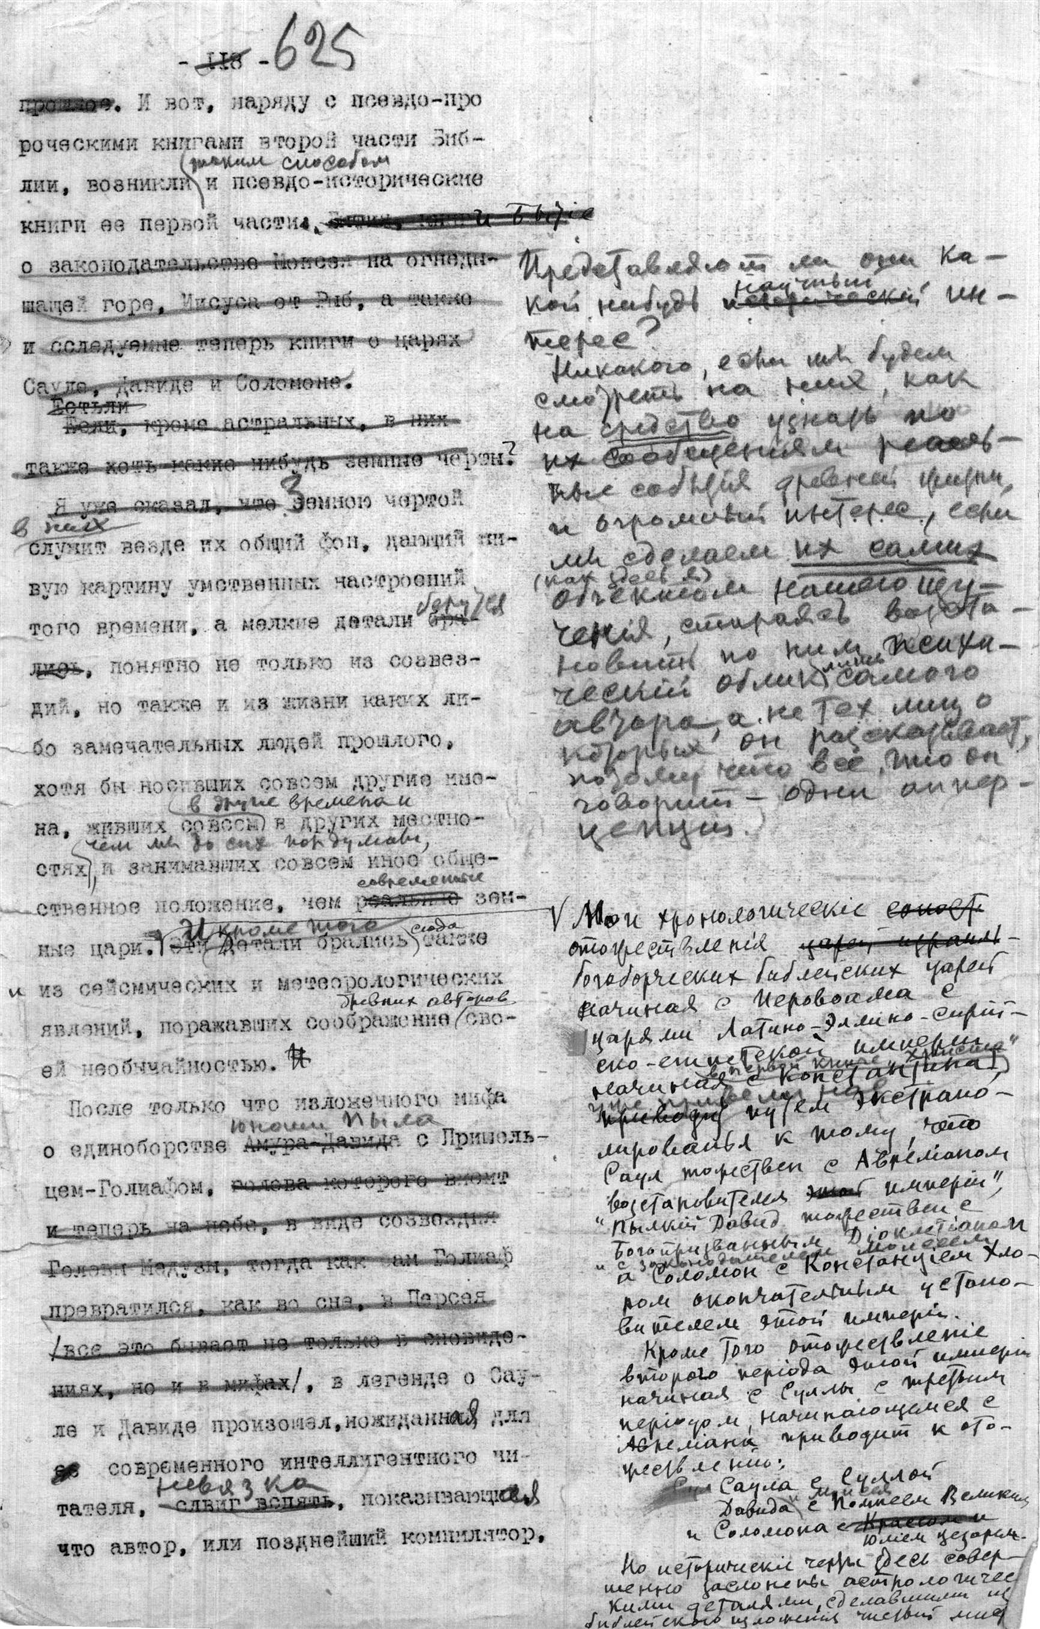 - 118 - 625
прошлое. И вот, наряду с псевдо-про
роческими книгами второй части Биб-
таким способом
лии, возникли и псевдо-исторические
книги ее первой части, и Бытие
о законодательстве Моисея на огнеды-
шащей горе, Иисуса от Рыб, а также
и сследуемые теперь книги о царях
Сауле, Давиде и Соломоне.
Есть ли
Если, кроме астральных, в них
также хоть какие нибудь земные черты?
Я уже сказал, что Земною чертой
в них
служит везде их общий фон, дающий жи-
вую картину умственных настроений
берутся
того времени, а мелкие детали бра-
лись, понятно не только из созвез-
дий, но также и из жизни каких ли-
бо замечательных людей прошлого,
хотя бы носивших совсем другие име-
в другие времена и
на, живших совсем в других местно-
чем мы до сих пор думали,
стях, и занимавших совсем иное обще-
современные
ственное положение, чем реальные зем-
И кроме того сюда
ные цари. Эти детали брались также
из сейсмических и метеорологических
древних авторов
явлений, поражавших соображение сво-
ей необычайностью.
После только что изложенного мифа
юноши Пыла
о единоборстве Амура-Давида с Пришель-
цем-Голиафом, голова которого висит
и теперь на небе, в виде созвездия
Головы Медузы, тогда как сам Голиаф
превратился, как во сне, в Персея
/все это бывает не только в сновиде-
ниях, но и в мифах/, в легенде о Сау-
ле и Давиде произошел, нежиданная для
современного интеллигентного чи-
невязка
тателя, сдвиг вспять, показывающая
что автор, или позднейший компилятор,
Представляют ли они ка-
научный
кой нибудь исторический ин-
терес?
Никакого, если мы будем
смотреть на них, как
на средство узнать по
их сообщениям реаль-
ные события древней жизни,
и огромный интерес, если
мы сделаем их самих
(как здесь я)
объектом нашего изу-
чения, стараясь возста-
новить по ним психи-
ческий облик лишь самого
автора, а не тех лиц о
которых он рассказывает,
потому что всё, что он
говорит - одни аппер-
цепции.
V Мои хронологическіе
отожествленія царей израиль-
богоборческих библейских царей
начиная с Иеровоама с
царями Латино-Эллино-Сирій-
ско-египетской империи
в первой книге "Христа"
начиная с Константина I,
уже привели нас
приводят путем экстрапо-
лированья к тому, что
Саул тожествен с Аврелианом
"возстановителем этой империи",
"Пылкий Давид тожествен с
Богопризванным Диоклетианом
с законодателем Моисеем
а Соломон с Констанцием Хло-
ром окончательным устано-
вителем этой империи.
Кроме того отожествленіе
второго періода этой империи
начиная с Суллы с третьим
періодом, начинающемся с
Аврелиана приводит к ото-
жествленію:
Саула с Суллой
Давида с Помпеем Великим
и Соломона с Крассом и
Юлием Цезарем.
Но историческіе черты здесь совер-
шенно заслонены астрологичес-
кими деталями, сделавшими из
библейского изложения чистый миф